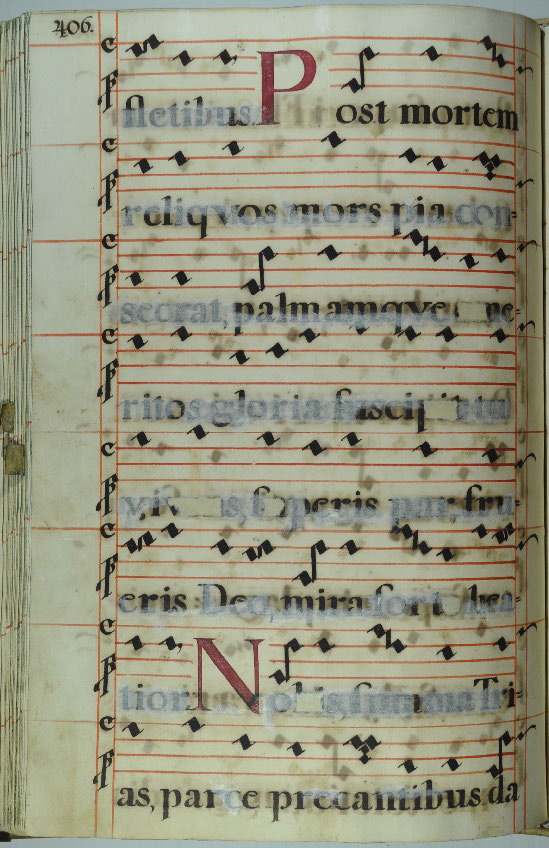 406.
fletibus. Post mortem
reliqvos mors pia con=
secrat, palmamqve me=
ritos gloria suscipit
vivens, superis par, fru=
eris Deo, mira sorte bea=
tior. Nobis summa Tri=
as, parce precantibus da